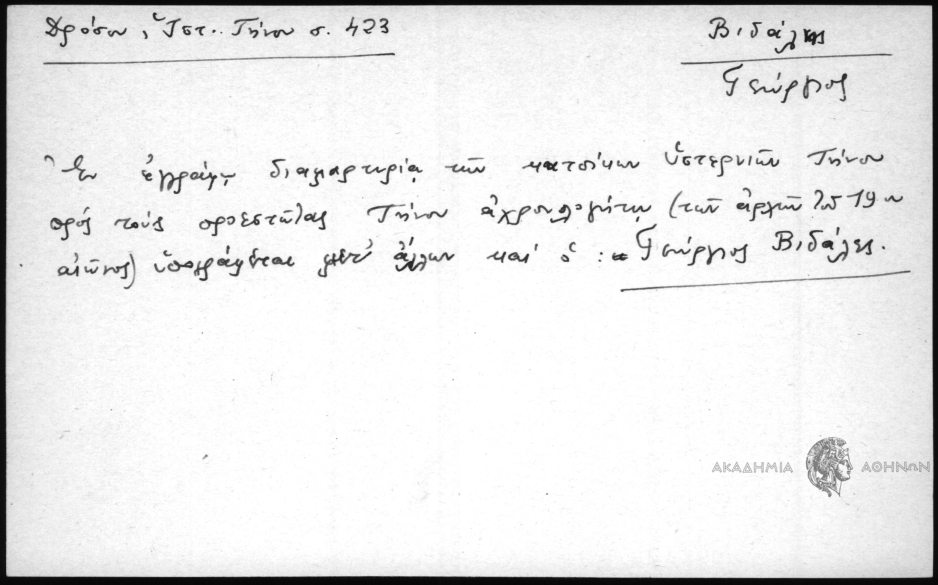 Δρόσου, Ἱστ. Τήνου σ. 423
Βιδάλης
Γεώργιος
Ἐν ἐγγράφῳ διαμαρτυρίᾳ τῶν κατοίκων Ὑστερνίων Τήνου
πρός τούς προεστῶτας Τήνου ἀχρονολογήτῳ (τῶν ἀρχῶν τοῦ 19ου
αἰῶνος) ὑπογράφεται μετ' ἄλλων καί ὁ : Γεώργιος Βιδάλες.
ΑΚΑΔΗΜΙΑ ΑΘΗΝΩΝ